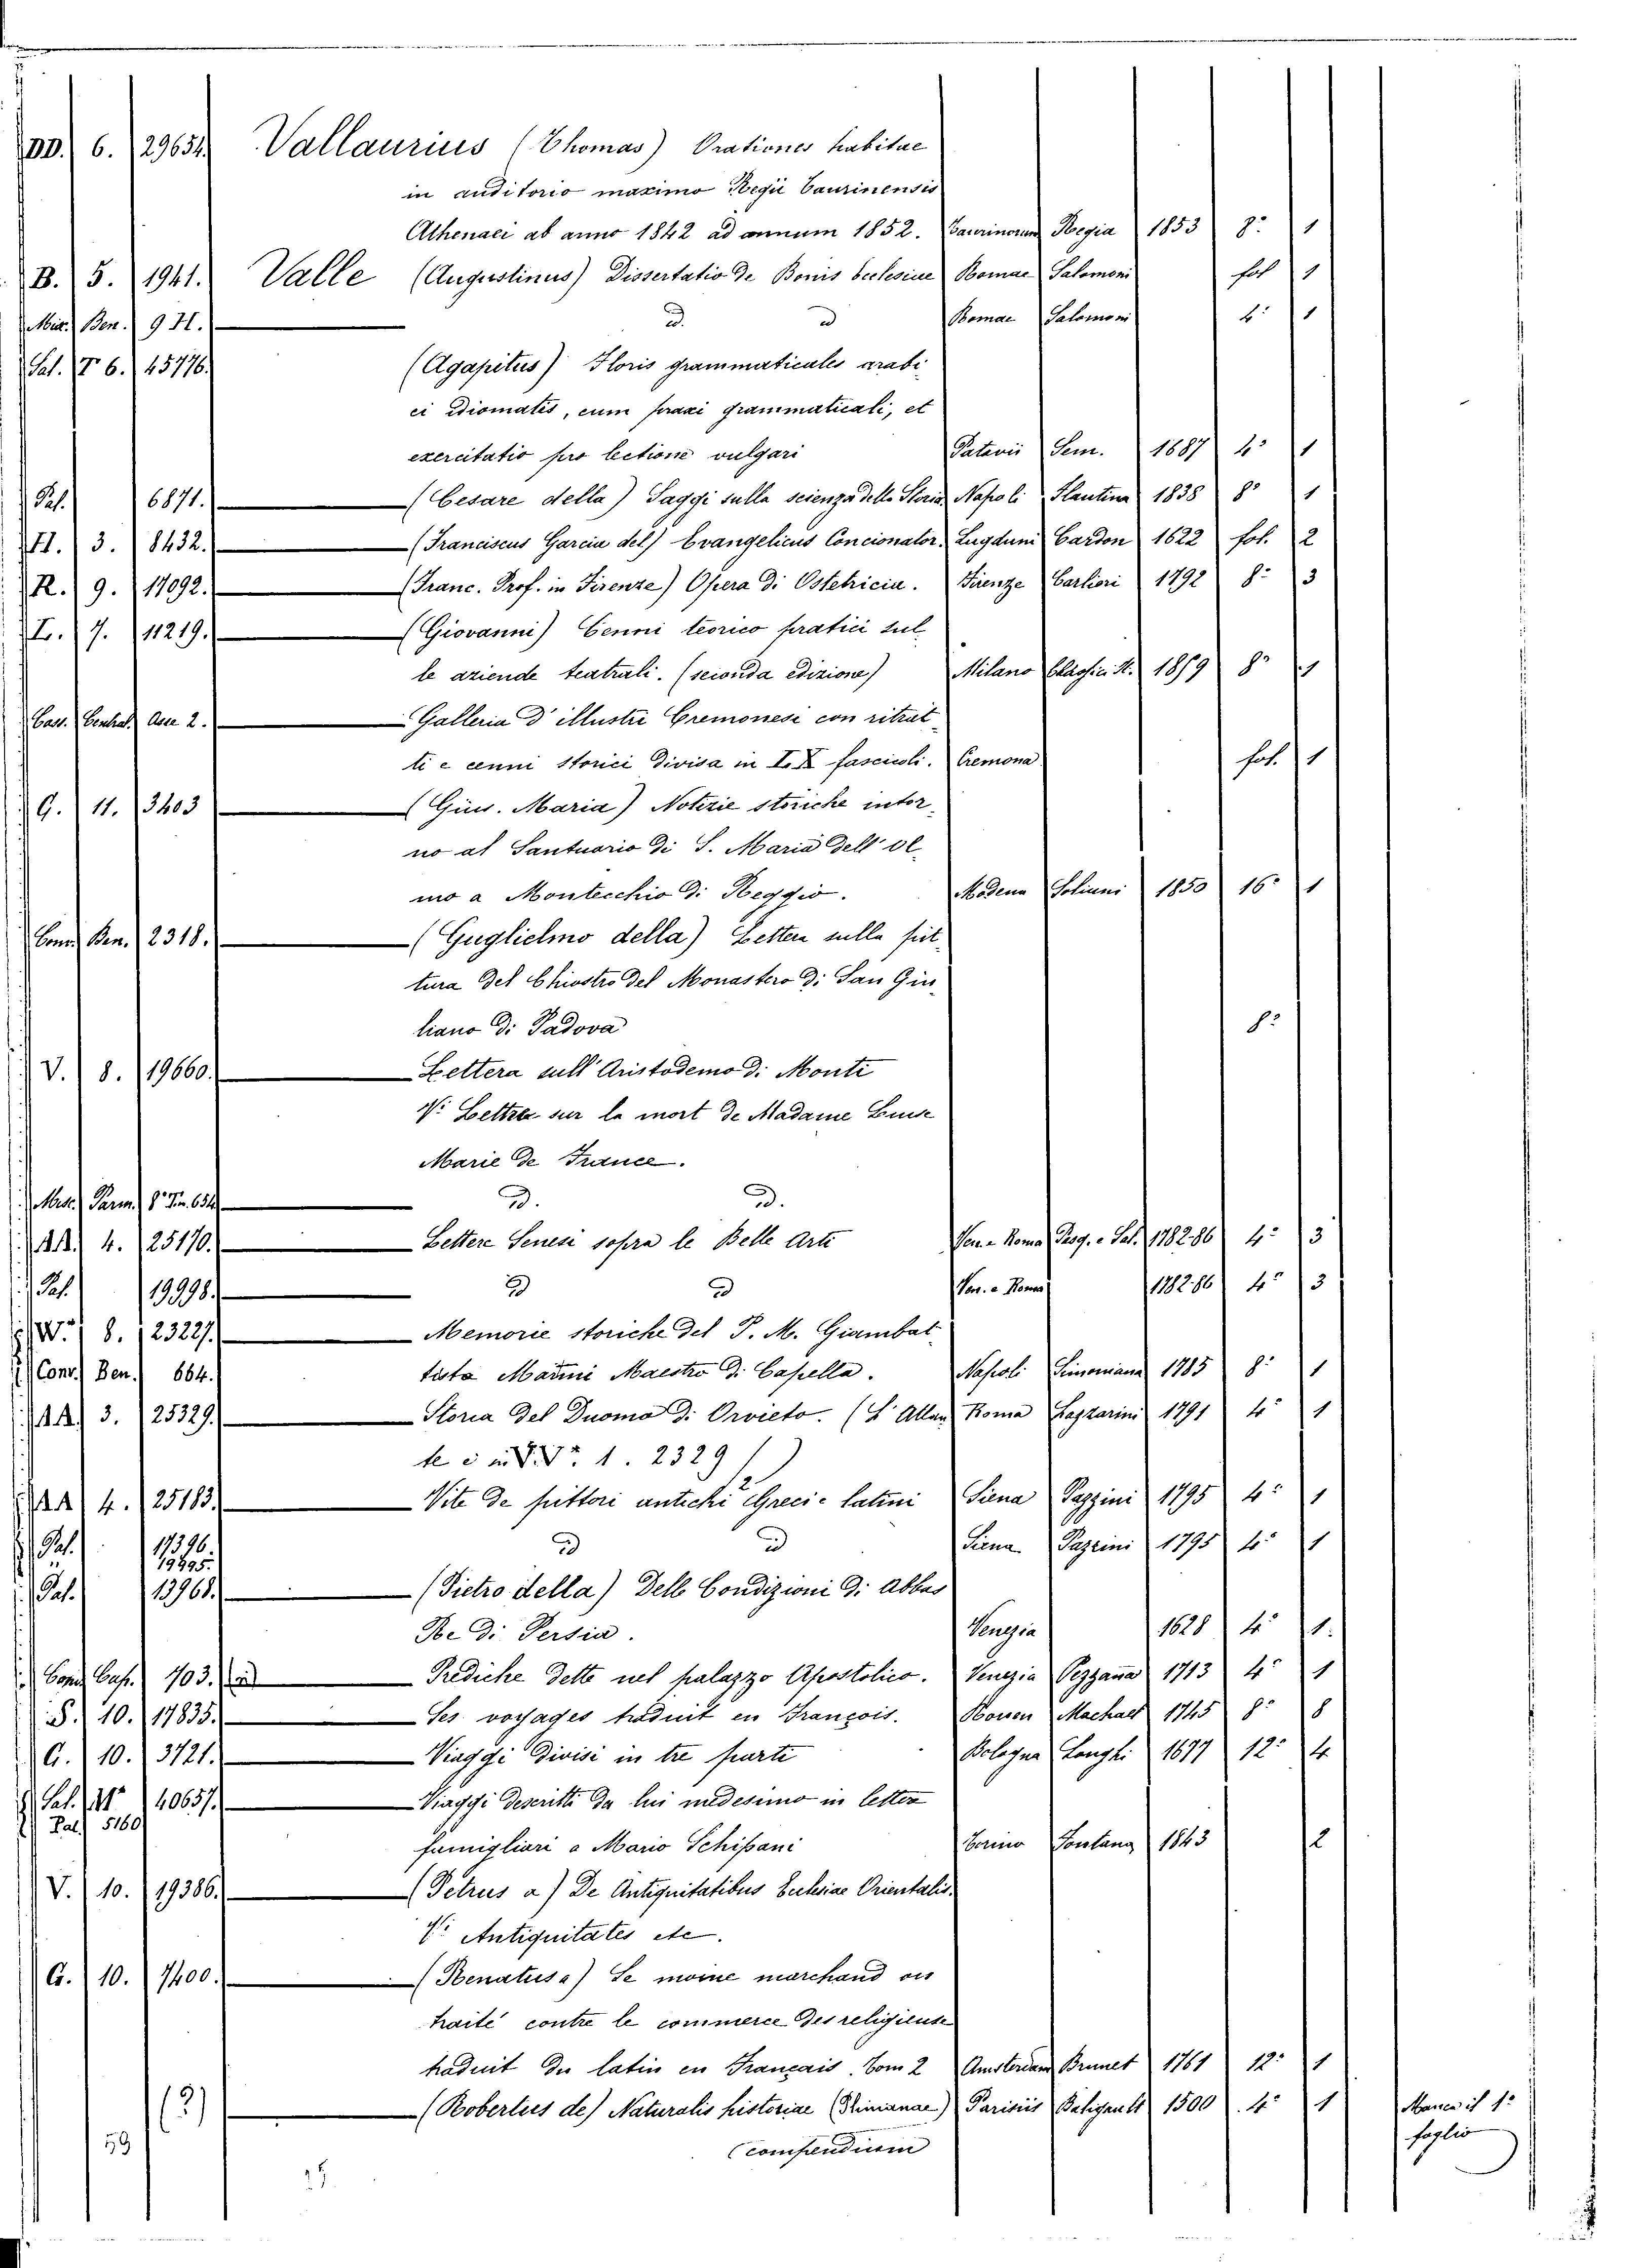 DD. 6. 29654. Vallaurius (Thomas) Orationes habitae
in auditorio maximo Regii Taurinensis
Athenaei ab anno 1842 ad annum 1852. Taurinorum Regia 1853 8.° 1
B. 5. 1941. Valle (Augustinus) Dissertatio de Bonis Ecclesiae Romae Salomoni fol 1
Mis. Ben. 9 H. d. d Romae Salomoni 4.° 1
Sal. T 6. 45776. (Agapitus) Floris grammaticales arabi
ci Idiomatis, cum praxi grammaticali, et
exercitatio pro lectione vulgari Patavii Sem. 1687 4.° 1
Pal. 6871. (Cesare della) Saggi sulla scienza della Storia Napoli Plautina 1838 8° 1
H. 3. 8432. (Franciscus Garcia del) Evangelicus Concionator. Lugduni Cardon 1622 fol. 2
R. 9. 17092. (Franc. Prof. in Firenze) Opera di Ostetricia. Firenze Carlieri 1792 8.° 3
L. 7. 11219. (Giovanni) Cenni teorico pratici sul
le aziende teatrali. (seconda edizione) Milano Classici It. 1859 8° 1
Cass. Central. Asse 2. Galleria d'illustri Cremonesi con ritrat
ti e cenni storici divisa in IX fascicoli. Cremona fol. 1
G. 11. 3403 (Gius. Maria) Notizie storiche intor
no al Santuario di S. Maria dell'ol
mo a Montecchio di Reggio. Modena Soliani 1850 16° 1
Conv. Ben. 2318. (Guglielmo della) Lettera sulla pit
tura del Chiostro del Monastero di San Giu
liano di Padova 8.°
V. 8. 19660. Lettera sull'Aristodemo di Monti
V. Lettres sur la mort de Madame Louise
Marie de France.
Misc. Parm. 8° Tm. 654 d. d.
AA. 4. 25170. Lettere Senesi sopra le Belle Arti Ven. e Roma Pasq. e Sal. 1782-86 4.° 3
Pal. 19998. d d Ven. e Roma 1782-86 4° 3
W. 8. 23227. Memorie storiche del P. M. Giambat
Conv. Ben. 664. tista Martini Maestro di Capella. Napoli Simoniana 1785 8.° 1
AA. 3. 25329. Storia del Duomo di Orvieto. (L'Atlan Roma Lazzarini 1791 4° 1
te è in V.V.° 1. 2329/2)
AA 4. 25183. Vite de pittori antichi Greci e latini Siena Pazzini 1795 4.° 1
Pal. 17396. 19895. d d Siena Pazzini 1795 4.° 1
Pal. 13968. (Pietro della) Delle Condizioni di Abbas
Re di Persia. Venezia 1628 4.° 1.
Conv. Cap. 703. Prediche dette nel palazzo Apostolico. Venezia Pezzana 1713 4.° 1
S. 10. 17835. Ses voyages traduit en François. Rouen Machael 1745 8.° 8
G. 10. 3721. Viaggi divisi in tre parti Bologna Longhi 1677 12.° 4
Sal. 40657. Viaggi descritti da lui medesimo in lettere
Pal. 5160 famigliari a Mario Schipani Torino Fontana 1843 2
V. 10. 19386. (Petrus a) De Antiquitatibus Ecclesiae Orientalis.
V. Antiquitates etc.
G. 10. 7400. (Renatus a) Le moine marchand ou
traité contre le commerce des religieuse
traduit du latin en Français. Tom 2 Amsterdam Brunet 1761 12.° 1
(3) (Robertus de) Naturalis historiae (Plinianae) Parisiis Baligault 1500 4.° 1 Manca il 1.°
59 compendium foglio